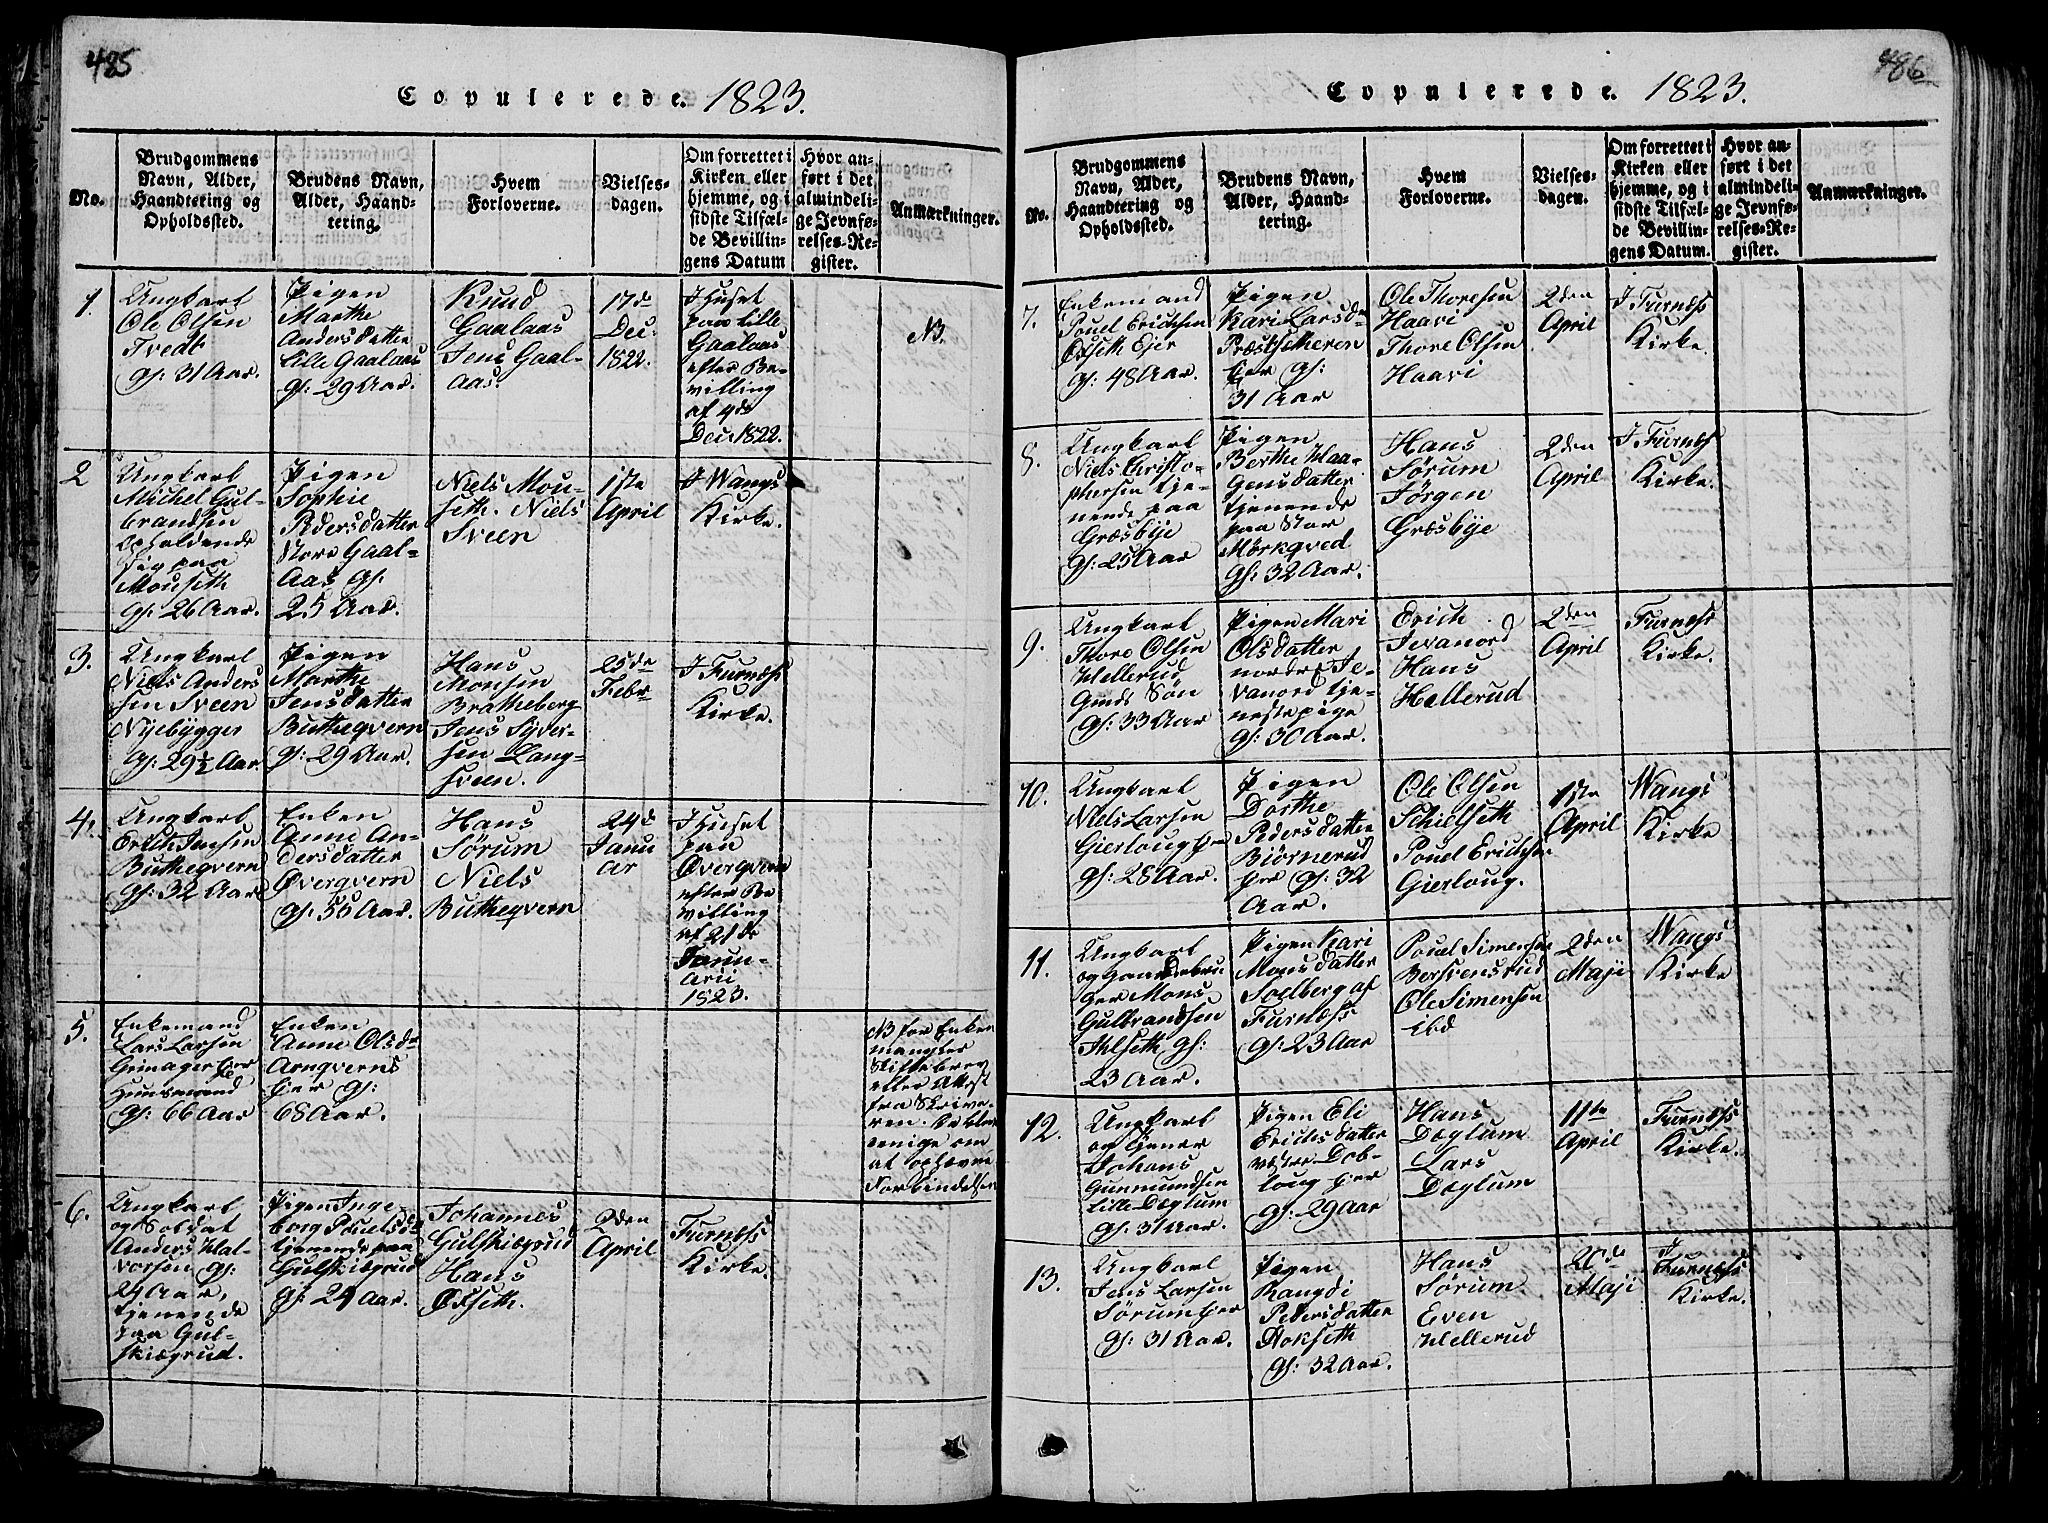 485
Copulerede. 1823.
No.
Brudgommens
Navn, Alder,
Haandtering og
Opholdssted.
Brudens Navn,
Alder, Haand-
tering.
Hvem
Forloverne.
Vielses-
dagen.
Om forrettet i
Kirken eller
hjemme, og i
sidste Tilfæl-
de Bevillin-
gens Datum
Hvor an-
ført i det
almindeli-
ge Jevnfø-
relses-Re-
gister.
Anmærkninger.
1.
Ungkarl
Ole Olsen
Tvedt
Gl: 31 Aar.
Pigen
Marthe
Andersdatter
Lille Gaalaas
Gl: 29 Aar.
Knud
Gaalaas
Jens Gaal-
aas.
17de
Dec:
1822.
I Huset
paa Lille
Gaalaas
efter Be-
villing
af 9de
Dec. 1822.
NB.
2
Ungkarl
Michel Gul-
brandsen
opholdende
sig paa
Mouseth
Gl: 26 Aar.
Pigen
Sophie
Pedersdatter
Store Gaal-
Aas Gl:
25 Aar.
Niels Mou-
seth. Niels
Sveen
1ste
April
I Wangs
Kirke.
3.
Ungkarl
Niels Anders
sen Sveen
Nyebygger
Gl: 29½ Aar.
Pigen
Marthe
Jensdatter
Butheqvern
Gl: 29 Aar.
Hans
Monsen
Bratheberg
Jens Syver-
sen Lang-
sveen.
25de
Febr
I Furnæss
Kirke.
4.
Ungkarl
Erich Jensen
Butheqvern
Gl: 32 Aar
Enken
Anne An-
dersdatter
Øverqvern
Gl: 56 Aar.
Hans
Sørum
Niels
Butheqvern
24de
Janu
ar
I Huset
paa
Øverqvern
efter Be
villing
af 21de
Janu-
arii
1823.
5.
Enkemand
Lars Larsen
Grinager Eier
Huusmand
Gl: 66 Aar
Enken
Anne Olsdr
Arnqverns
Eier Gl:
68 Aar.
NB for Enken
mangler
Skiftebrev
eller Attest
fra Skrive-
ren.
enige om
at ophæve
Forbindelsen
6.
Ungkarl
og Soldat
Anders Hal-
vorsen Gl:
24 Aar,
tjenende
paa Gul-
skiøgrud.
Pigen Inge
borg Pouelsdr
tjenende paa
Gulskiøgrud
Gl: 24 Aar.
Johannes
Gulskiøgrud
Hans
Oxseth.
2den
April
Furnæss
Kirke.
486
Copulerede. 1823.
No.
Brudgommens
Navn, Alder,
Haandtering og
Opholdssted.
Brudens Navn,
Alder, Haand-
tering.
Hvem
Forloverne.
Vielses-
dagen.
Om forrettet i
Kirken eller
hjemme, og i
sidste Tilfæl-
de Bevillin-
gens Datum.
Hvor an-
ført i det
almindeli-
ge Jevnfø-
relses-Re-
gister.
Anmærkninger.
7.
Enkemand
Pouel Erichsen
Oxseth Ejer
Gl: 48 Aar.
Pigen
Kari Larsdr
Præstseteren
Eier Gl:
31 Aar
Ole Thoresen
Haavi
Thore Olsen
Haavi
2den
April
I Furnæss
Kirke.
8.
Ungkarl
Niels Christo-
phersen tje-
nende paa
Græsbye
Gl: 25 Aar
Pigen
Berthe Haa-
gensdatter
tjenende
paa Stor
Mørkqved
Gl: 32 Aar.
Hans
Sørum
Jørgen
Græsbye
2den
April
I Furnæs
Kirke.
9.
Ungkarl
Thore Olsen
Hellerud
Gmds Søn
Gl: 33 Aar
Pigen Mari
Olsdatter
nordre Je-
vanord tje-
nestepige
Gl: 30 Aar.
Erich
Jevanord
Hans
Hellerud
2den
April
Furness
Kirke.
10.
Ungkarl
Niels Larsen
Gierloug Eier
Gl: 28 Aar.
Pigen
Dorthe
Pedersdatter
Biørnerud
Eier Gl: 32
Aar.
Ole Olsen
Schielseth
Pouel Erichsen
Gierloug.
1ste
April
Wangs
Kirke
11.
Ungkarl
og Gaardebru
ger Mons
Gulbrandsen
Ihlseth Gl:
23 Aar.
Pigen Kari
Monsdatter
Soelberg af
Furnæss
Gl: 23 Aar
Pouel Simensen
Bersvensrud
Ole Simensen
ibd
2den
Maji
Wangs
Kirke
12.
Ungkarl
og Tjener
Johans
Gunmundsen
Lille Dæglum
Gl: 31 Aar.
Pigen Eli
Erichsdatter
vestre Dob-
loug Eier
Gl: 29 Aar
Hans
Dæglum
Lars
Dæglum
11te
April
Furnæss
Kirke.
13.
Ungkarl
Jens Larsen
Sørum Eier
Gl: 31 Aar.
Pigen
Rangdi
Pedersdatter
Hokseth
Gl: 32 Aar.
Hans
Sørum
Even
Hellerud
21de
Maji
I
Furness
Kirke.